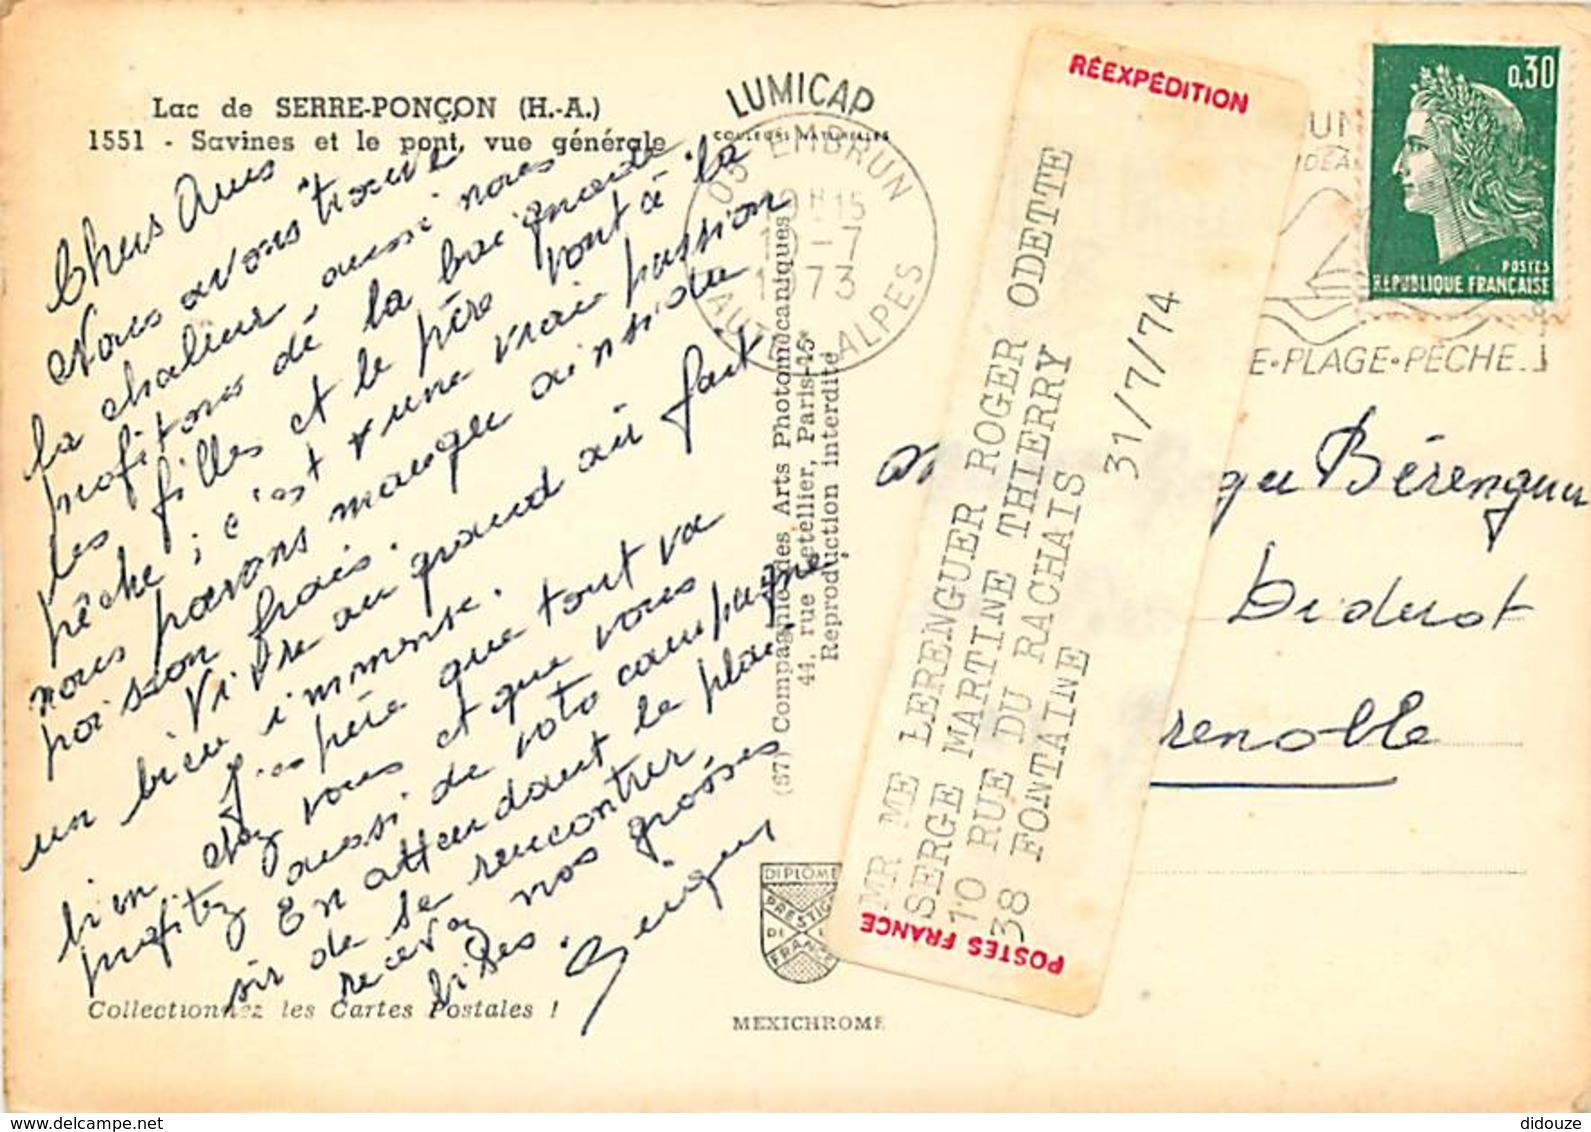 Lac de SERRE-PONÇON (H.-A.)
1551 - Savines et le pont, vue générale
LUMICAP
COULEURS NATURELLES
05 EMBRUN
19H15
10-7
1973
HAUTES ALPES
PLAGE•PÊCHE
0,30
POSTES
RÉPUBLIQUE FRANÇAISE
Chers Amis
Nous avons trouvé
la chaleur, aussi nous
profitons de la baignade
les filles et le père vont à la
pêche ; c'est une vraie passion
nous pavons manque ainsi du
poisson frais.
Vidre au grand air fait
un bien immense.
J'espère que tout va
bien chez vous et que vous
profitez aussi de votre campagne,
En attendant le plai
sir de se rencontrer,
recevez nos grosses
bises.
Collectionnez les Cartes Postales !
(67) Compagnie des Arts Photomécaniques
44, rue Letellier, Paris-15e
Reproduction interdite
DIPLOME
PRESTIGE
DE
FRANCE
MEXICHROME
RÉEXPÉDITION
MR ME LERENGUER ROGER ODETTE
SERGE MARTINE THIERRY
10 RUE DU RACHAIS
38 FONTAINE
31/7/74
POSTES FRANCE
Bérenguer
Diderot
renoble
didouze